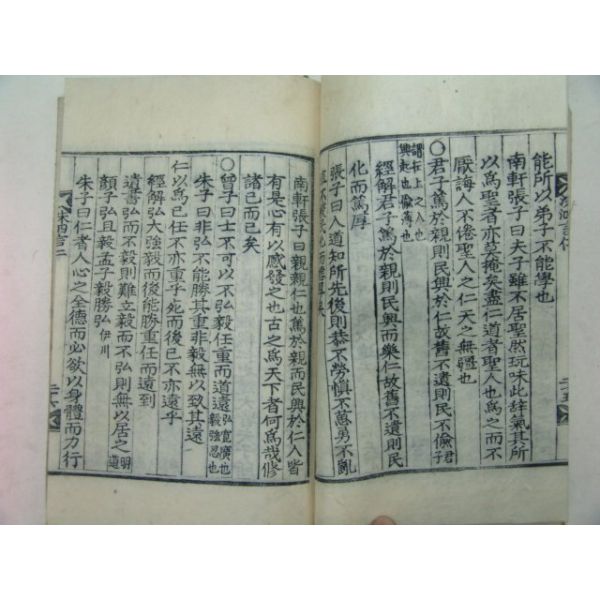 能所以弟子不能學也
南軒張子曰夫子雖不居聖然玩味此辭氣其所
以爲聖者亦莫掩矣盡仁道者聖人也爲之而不
厭誨人不倦聖人之仁天之無疆也
○君子篤於親則民興於仁故舊不遺則民不偸君
謂在上之人也
興起也偸薄也
經解君子篤於親則民興而樂仁故舊不遺則民
化而篤厚
張子曰人道知所先後則恭不勞愼不葸勇不亂
直不絞民化而德厚矣
南軒張子曰親親仁也篤於親而民興於仁人皆
有是心有以感發之也古之爲天下者何爲哉修
諸己而已矣
○曾子曰士不可以弘毅任重而道遠弘寬廣也
毅強忍也
朱子曰非弘不能勝其重非毅無以致其遠
仁以爲己任不亦重乎死而後已不亦遠乎
經解弘大強毅而後能勝重任而遠到
遺書弘而不毅則難立毅而不弘則無以居之明道
顏子弘且毅孟子毅勝弘伊川
朱子曰仁者人心之全德而必欲以身體而力行